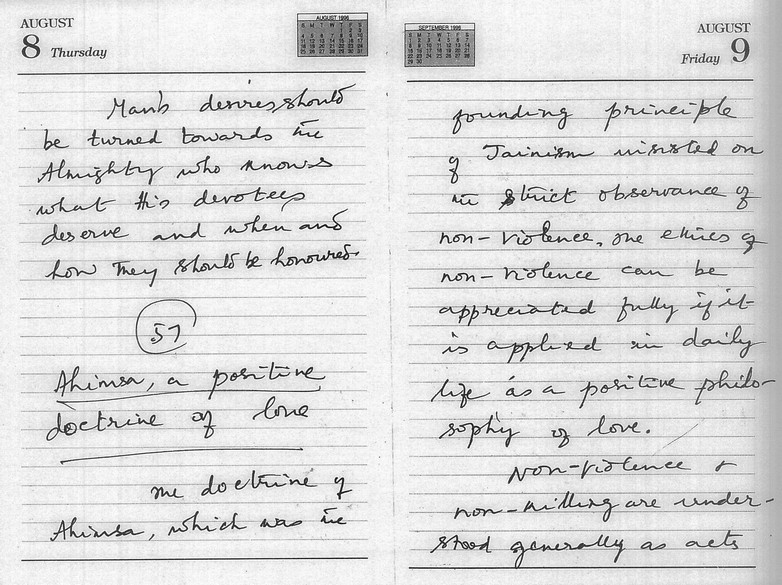 AUGUST
8 Thursday
AUGUST 1996
Man's desires should
be turned towards the
Almighty who knows
what His devotees
deserve and when and
how they should be honoured.
57
Ahimsa, a positive
doctrine of love
The doctrine of
Ahimsa, which was the
SEPTEMBER 1996
AUGUST
Friday 9
founding principle
of Jainism insisted on
the strict observance of
non-violence. The ethics of
non-violence can be
appreciated fully if it
is applied in daily
life as a positive philo-
sophy of love.
Non-violence &
non-killing are under-
stood generally as acts